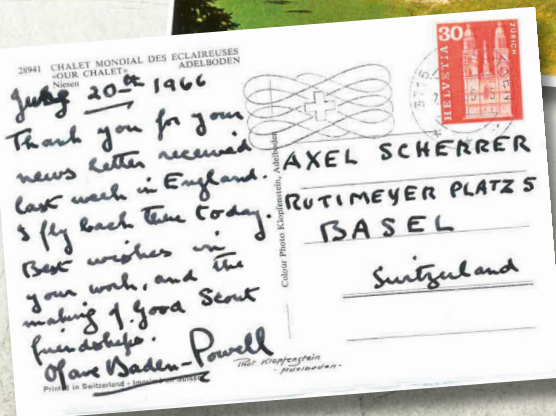 28941 CHALET MONDIAL DES ECLAIREUSES
«OUR CHALET» ADELBODEN
Niesen
July 20th 1966
Thank you for your
news letter received
last week in England.
I fly back there today.
Best wishes in
your work, and the
making of Good Scout
friendships.
Olave Baden-Powell
Printed in Switzerland - Imprimé en Suisse
Colour Photo Klopfenstein, Adelboden
Phot Klopfenstein
- Adelboden -
30
HELVETIA
ZÜRICH
3715
AXEL SCHERRER
RUTIMEYER PLATZ 5
BASEL
Switzerland